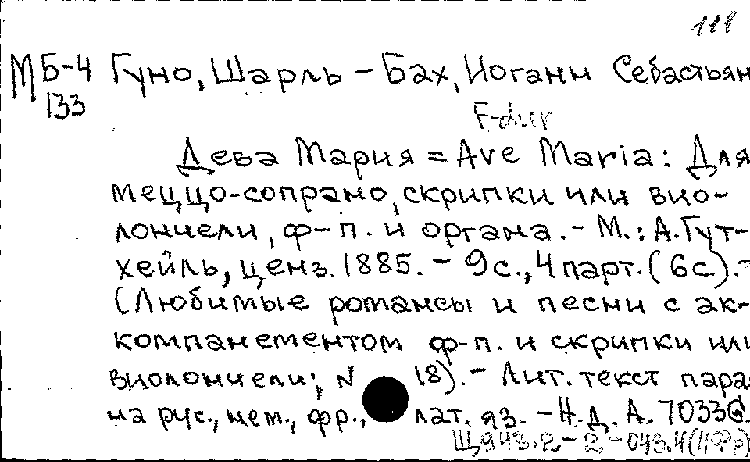 118
МБ-4 Гуно, Шарль – Бах, Иоганн Себастьян
133
F-dur
Дева Мария = Ave Maria: Для
меццо-сопрано, скрипки или вио-
лончели, ф-п. и органа. – М.: А. Гут-
хейль, ценз. 1885. – 9с., 4 парт. (6с). –
(Любимые романсы и песни с ак-
компанементом ф-п. и скрипки или
виолончели; N 18). – Лит. текст пара
на рус., нем., фр., лат. яз. – Н.д. А. 7033G.